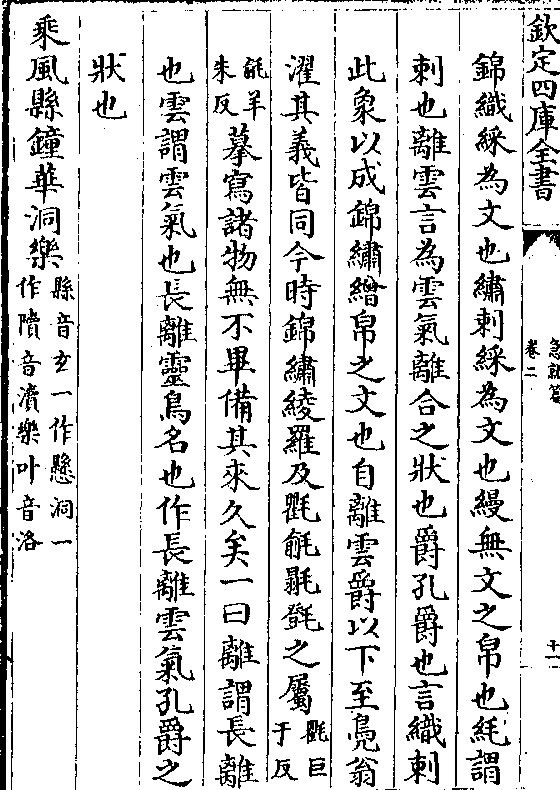 欽定四庫全書
急就篇
卷二
十一
錦織綵為文也繡刺綵為文也縵無文之帛也𦀖謂
刺也離雲言為雲氣離合之狀也爵孔爵也言織刺
此象以成錦繡繒帛之文也自離雲爵以下至鳧翁
濯其義皆同今時錦繡綾羅及氍毹𣰆㲪之屬氍巨于反
毹羊朱反摹寫諸物無不畢備其來久矣一曰離謂長離
也雲謂雲氣也長離靈鳥名也作長離雲氣孔爵之
狀也
乘風縣鐘華洞樂縣音玄一作懸洞一作隫音瀆樂叶音洛